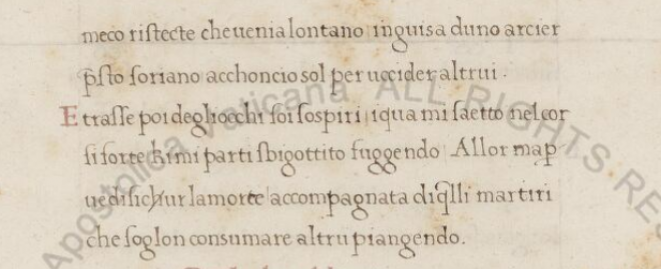 meco ristecte che uenia lontano inguisa duno arcier
p̃sto soriano acchoncio sol per uccider altrui .
E trasse poi degliocchi soi sospiri iqua mi saetto nelcor
si forte chimi parti sbigottito fuggendo Allor map
ue di sichur lamorte accompagnata diq̃lli martiri
che soglon consumare altru piangendo .
Apostolica Vaticana ALL RIGHTS RES